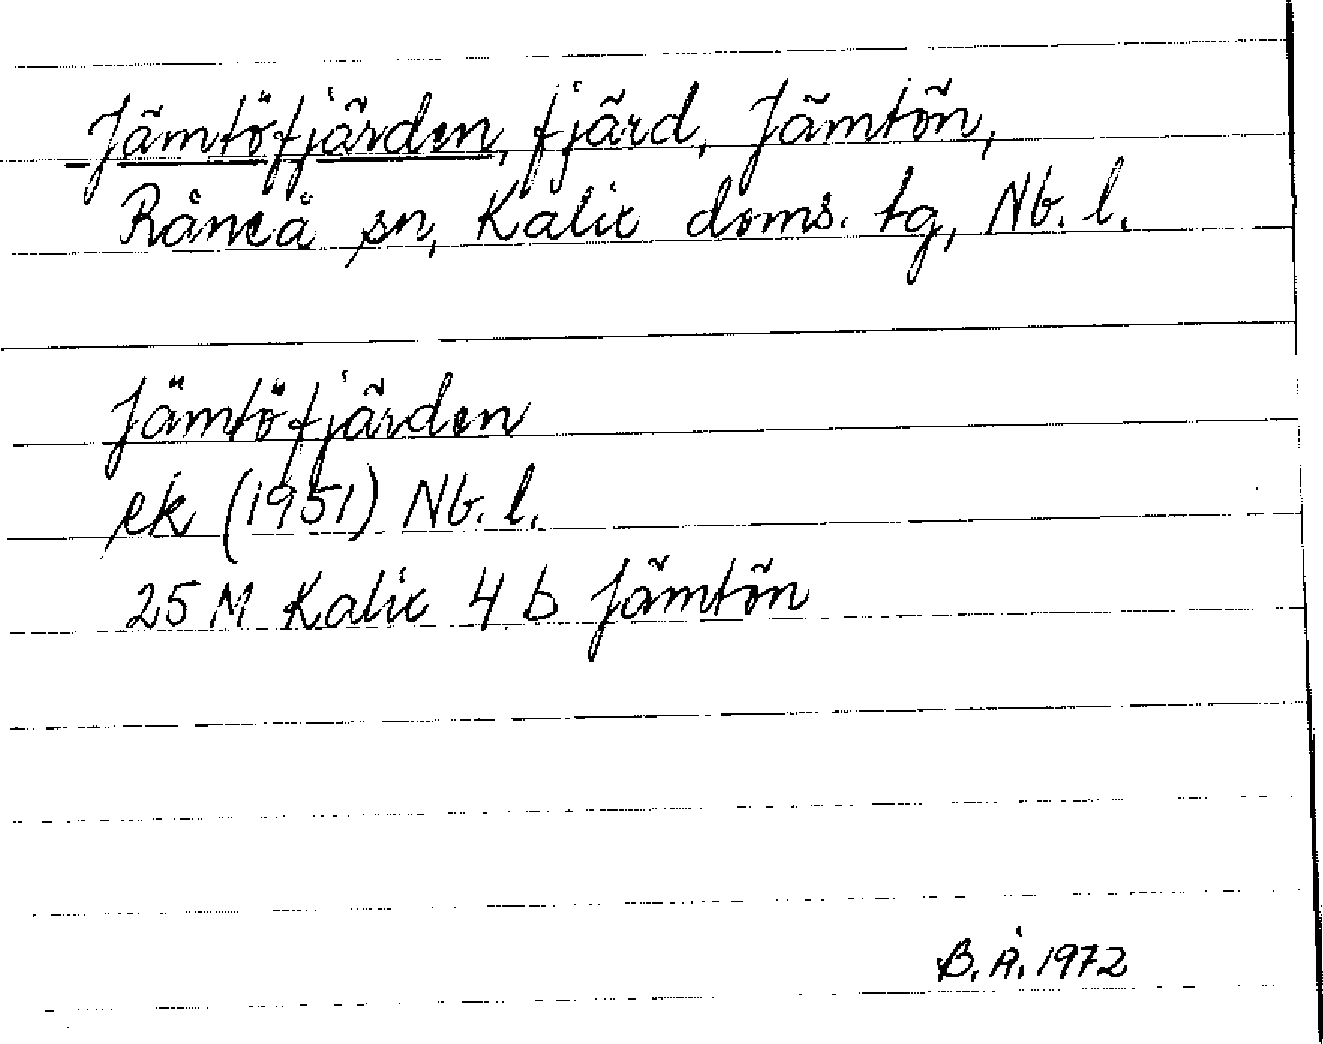 Jämtöfjärden, fjärd, Jämtön,
Råneå sn, Kalix doms. tg, Nb. l.
Jämtöfjärden
ek (1951) Nb. l.
25 M Kalix 4 b Jämtön
B. Å. 1972